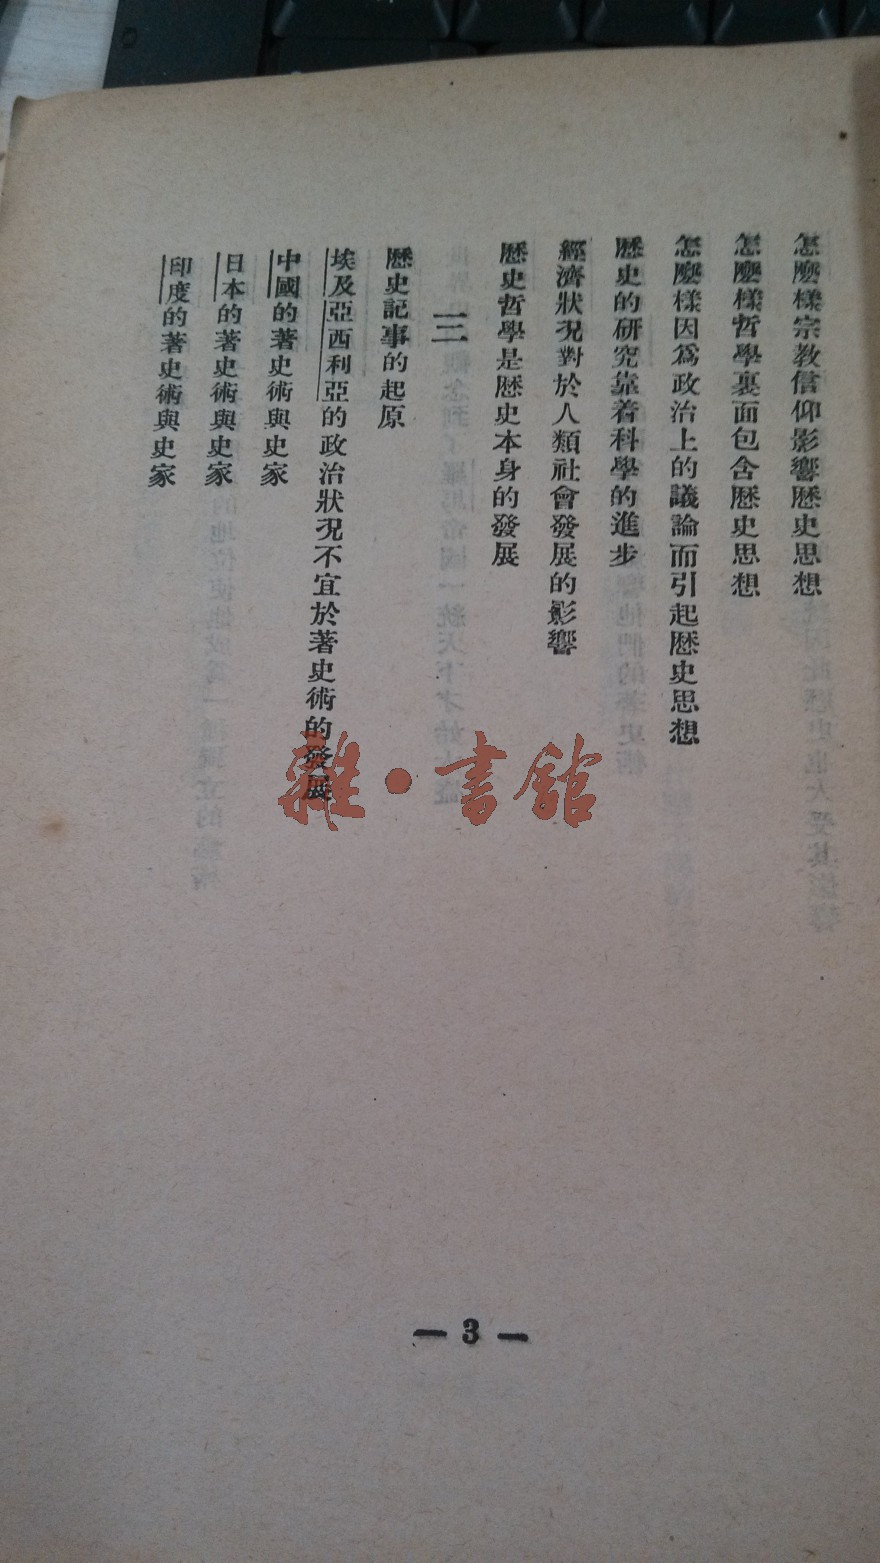 怎麼樣宗教信仰影響歷史思想
怎麼樣哲學裏面包含歷史思想
怎麼樣因爲政治上的議論而引起歷史思想
歷史的研究靠着科學的進步
經濟狀況對於人類社會發展的影響
歷史哲學是歷史本身的發展
三
歷史記事的起原
埃及亞西利亞的政治狀況不宜於著史術的發展
中國的著史術與史家
日本的著史術與史家
印度的著史術與史家
雜·書館
— 3 —